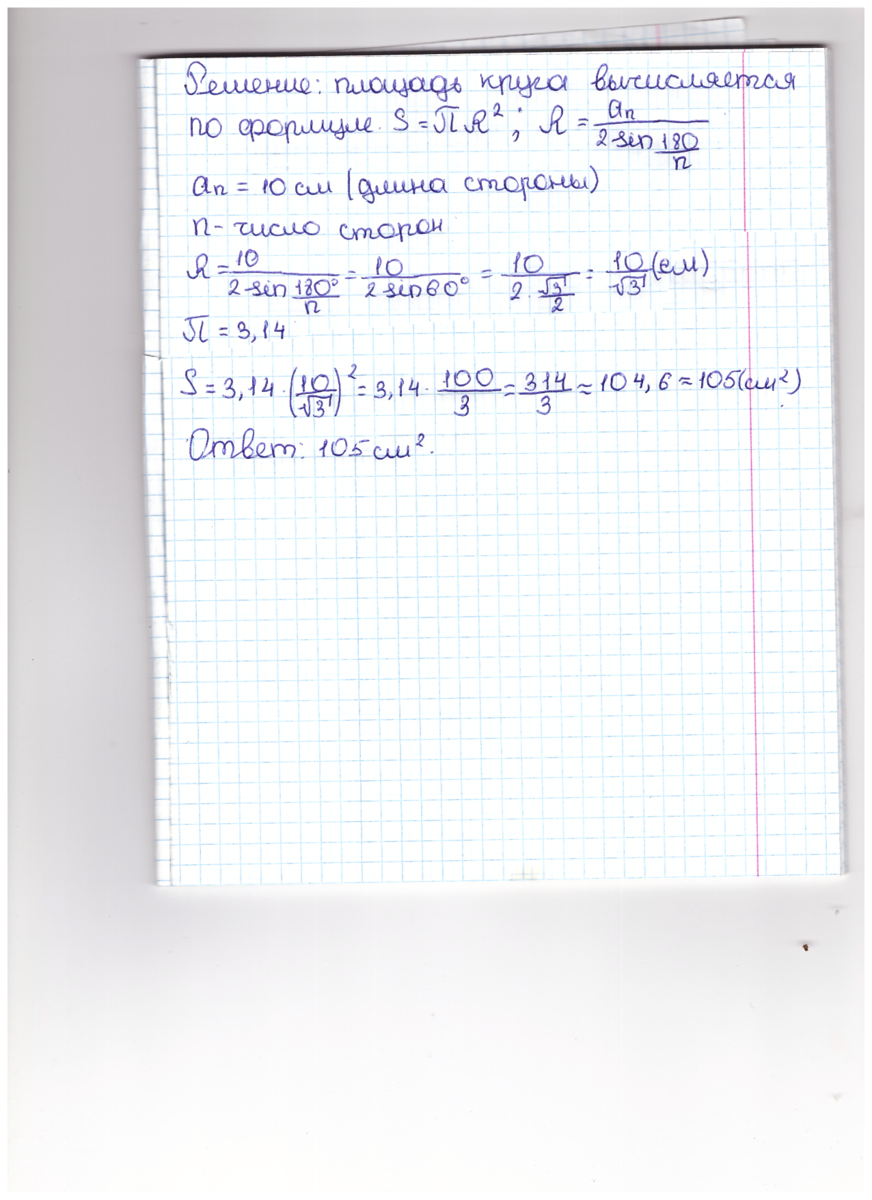 Решение: площадь круга вычисляется
по формуле. S = ПR²; R = aₙ/(2 sin 180/n)
aₙ = 10 см (длина стороны)
n - число сторон
R = 10/(2 sin 180°/n) = 10/(2 sin 60°) = 10/(2 · √3/2) = 10/√3 (см)
П = 3,14
S = 3,14 · (10/√3)² = 3,14 · 100/3 = 314/3 ≈ 104,6 ≈ 105 (см²)
Ответ: 105 см².